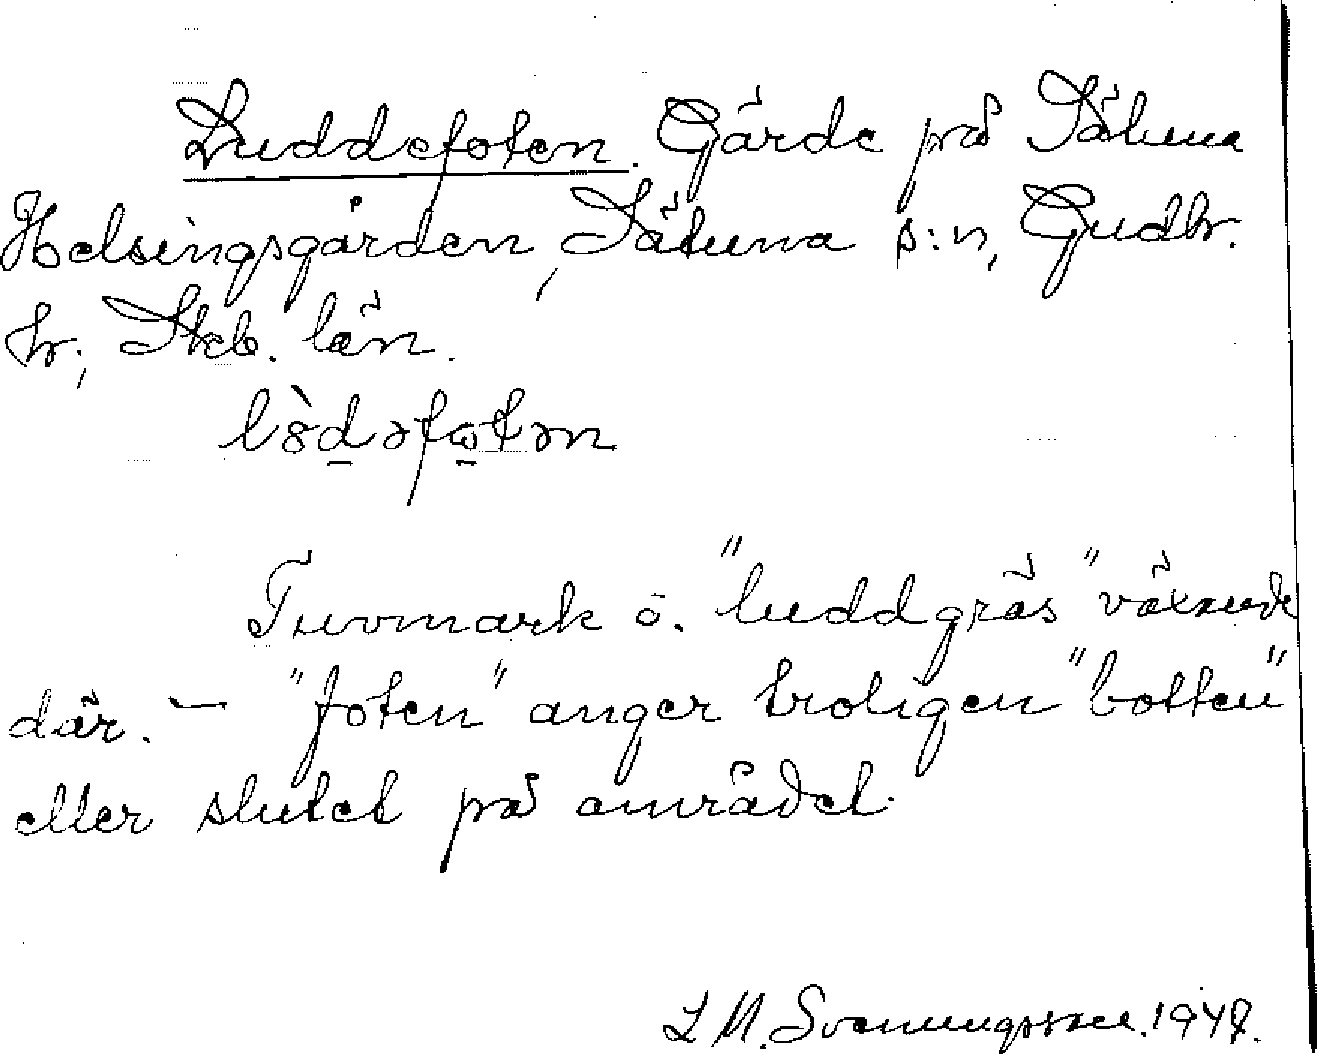 Luddefoten. Gärde på Sätuna
Helsingsgården, Sätuna s:n, Gudh.
hr; Skb. län.
lò̤dəfotən
Tuvmark o. "luddgräs" växande
där. - "foten" anger troligen "botten"
eller slutet på området.
L M. Svenungsson. 1948.